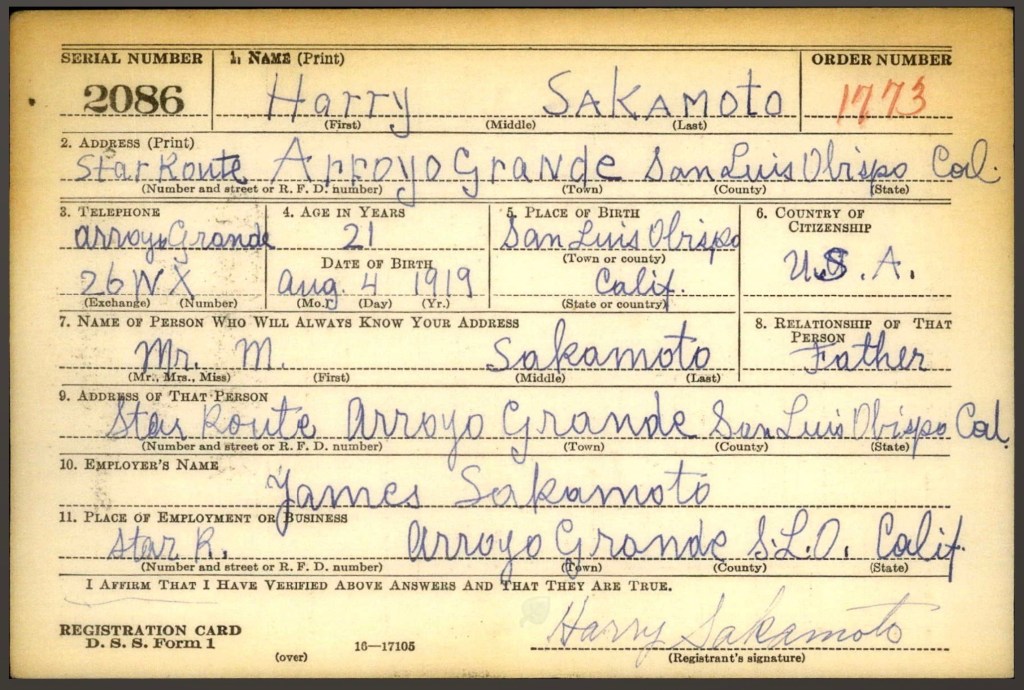 SERIAL NUMBER 1. NAME (Print) ORDER NUMBER
2086 Harry SAKAMOTO 1773
(First) (Middle) (Last)
2. ADDRESS (Print)
Star Route Arroyo Grande San Luis Obispo Cal.
(Number and street or R. F. D. number) (Town) (County) (State)
3. TELEPHONE 4. AGE IN YEARS 5. PLACE OF BIRTH 6. COUNTRY OF CITIZENSHIP
Arroyo Grande 21 San Luis Obispo U.S.A.
DATE OF BIRTH (Town or county)
26 W X Aug. 4 1919 Calif.
(Exchange) (Number) (Mo.) (Day) (Yr.) (State or country)
7. NAME OF PERSON WHO WILL ALWAYS KNOW YOUR ADDRESS 8. RELATIONSHIP OF THAT PERSON
Mr. M. Sakamoto Father
(Mr., Mrs., Miss) (First) (Middle) (Last)
9. ADDRESS OF THAT PERSON
Star Route Arroyo Grande San Luis Obispo Cal.
(Number and street or R. F. D. number) (Town) (County) (State)
10. EMPLOYER'S NAME
James Sakamoto
11. PLACE OF EMPLOYMENT OR BUSINESS
Star R. Arroyo Grande S.L.O. Calif.
(Number and street or R. F. D. number) (Town) (County) (State)
I AFFIRM THAT I HAVE VERIFIED ABOVE ANSWERS AND THAT THEY ARE TRUE.
REGISTRATION CARD Harry Sakamoto
D. S. S. Form 1 (over) 16—17105 (Registrant's signature)